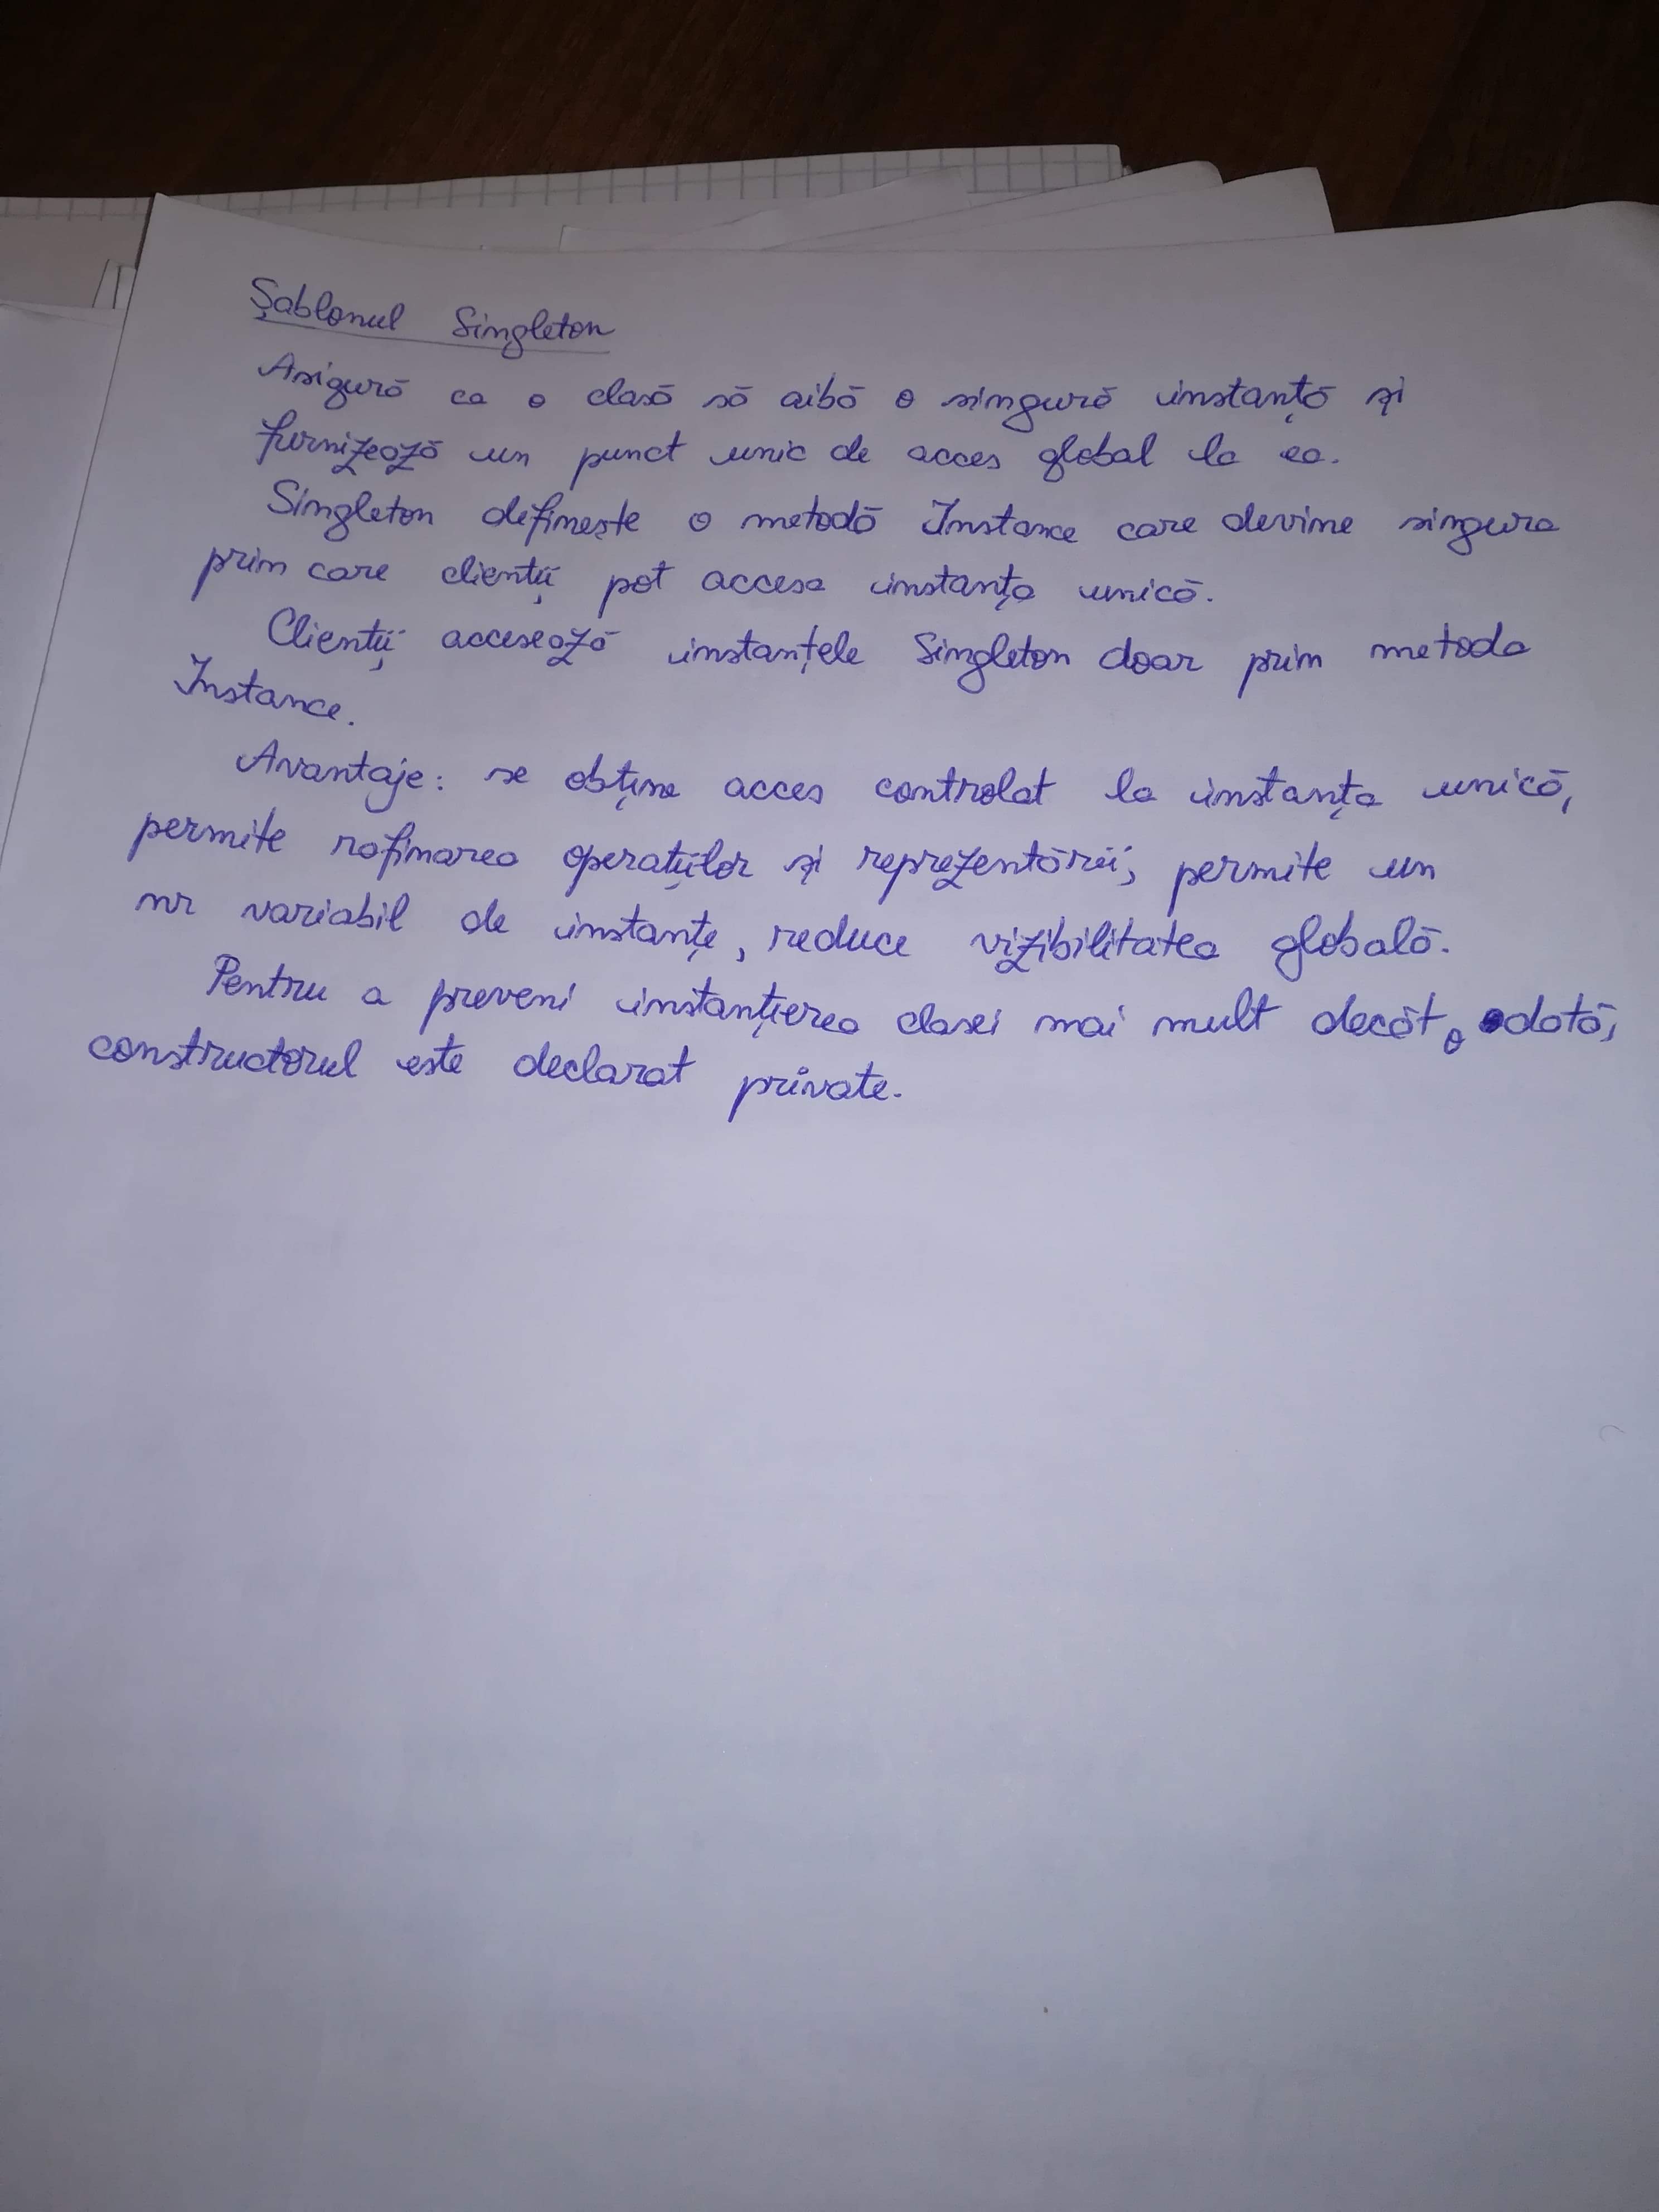 Șablonul Singleton
Asigură ca o clasă să aibă o singură instanță și
furnizează un punct unic de acces global la ea.
Singleton definește o metodă Instance care devine singura
prin care clienții pot accesa instanța unică.
Clienții accesează instanțele Singleton doar prin metoda
Instance.
Avantaje: se obține acces controlat la instanța unică,
permite rafinarea operațiilor și reprezentării, permite un
nr variabil de instanțe, reduce vizibilitatea globală.
Pentru a preveni instanțierea clasei mai mult decât o dată,
constructorul este declarat private.